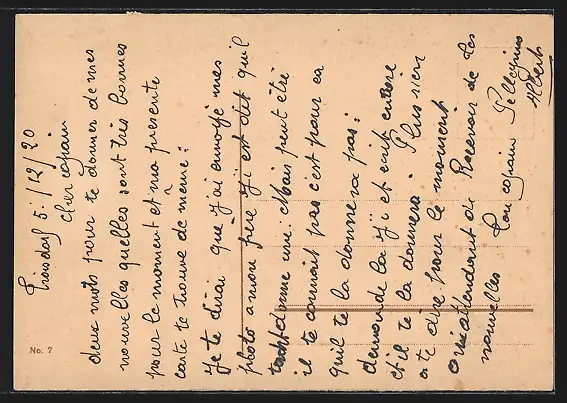 Troisdorf 5/12/20
Cher copain
deux mots pour te donner de mes
nouvelles quelles sont très bonnes
pour le moment et ma presente
carte te trouve de meme.
Je te dirai que j'ai envoyé mes
photo a mon frère j'i est dit qu'il
donne une. Mais peut être
il te connait pas c'est pour ca
qu'il te la donnera pas.
demande la j'i et écrit encore
et il te la donnera. Plus rien
a te dire pour le moment
en attendant de Recevoir de tes
nouvelles Ton copain Pellegrino
Albert
No. 7